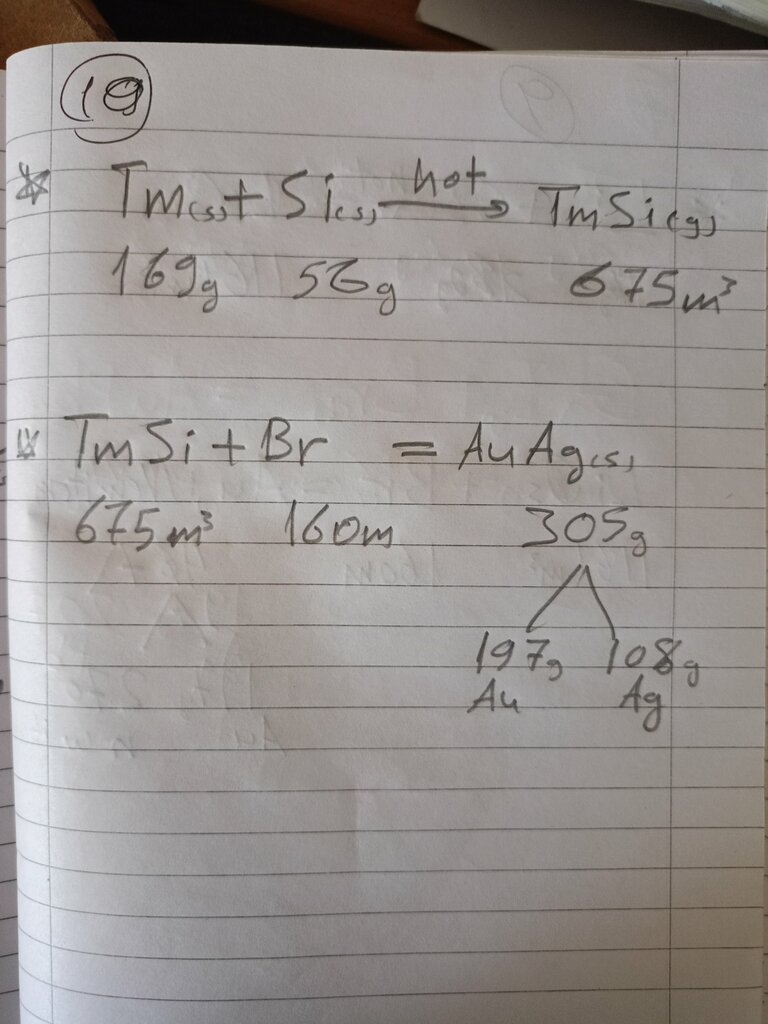 19
Tm(s) + Si(s) hot → TmSi(g)
169g 56g 675m³
TmSi + Br = AuAg(s)
675m³ 160m 305g
197g 108g
Au Ag